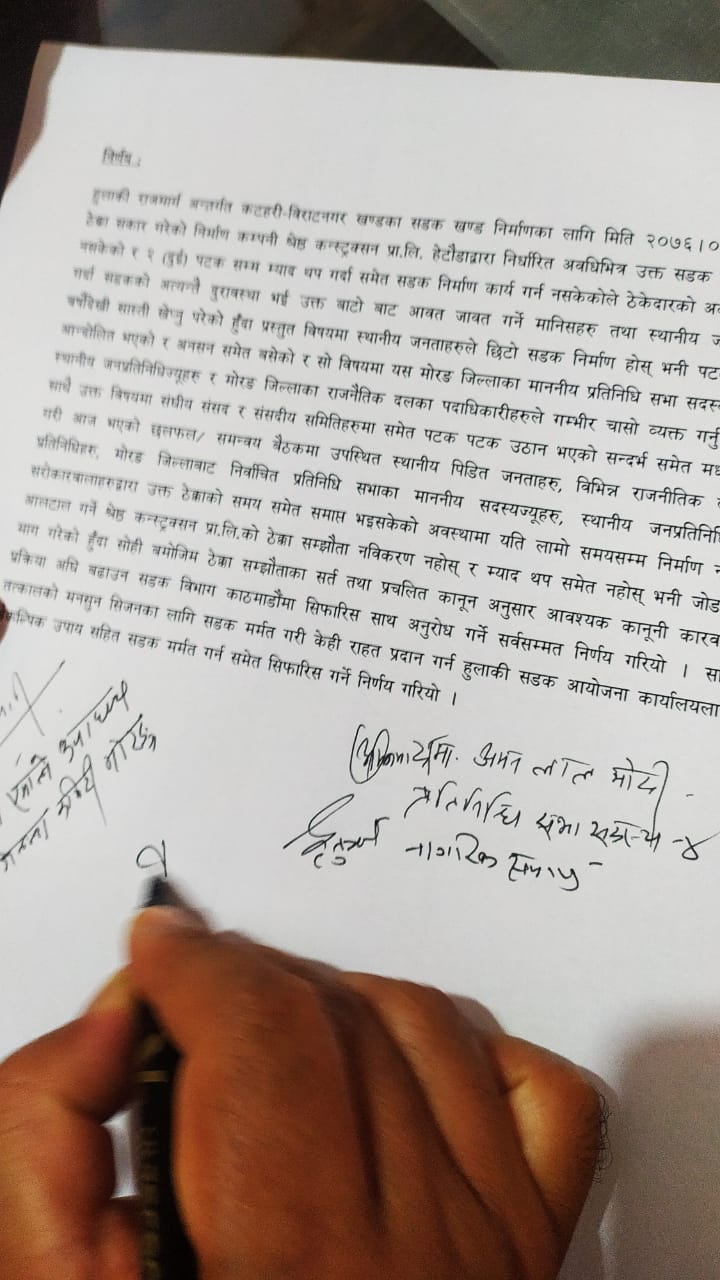 निर्णय :
हुलाकी राजमार्ग अन्तर्गत कटहरी-विराटनगर खण्डका सडक खण्ड निर्माणका लागि मिति २०७६।०
ठेक्का सकार गरेको निर्माण कम्पनी श्रेष्ठ कन्स्ट्रक्सन प्रा.लि. हेटौडाद्वारा निर्धारित अवधिभित्र उक्त सडक
नसकेको र २ (दुई) पटक सम्म म्याद थप गर्दा समेत सडक निर्माण कार्य गर्न नसकेकोले ठेकेदारको
गर्दा सडकको अत्यन्तै दुरावस्था भई उक्त बाटो बाट आवत जावत गर्ने मानिसहरु तथा स्थानीय
वर्षौदेखी सास्ती खेप्नु परेको हुँदा प्रस्तुत विषयमा स्थानीय जनताहरुले छिटो सडक निर्माण होस् भनी
आन्दोलित भएको र अनसन समेत बसेको र सो विषयमा यस मोरङ जिल्लाका माननीय प्रतिनिधि सभा
स्थानीय जनप्रतिनिधिज्यूहरु र मोरङ जिल्लाका राजनैतिक दलका पदाधिकारीहरुले गम्भीर चासो व्यक्त
साथै उक्त विषयमा संघीय संसद र संसदीय समितिहरुमा समेत पटक पटक उठान भएको सन्दर्भ समेत
गरी आज भएको छलफल/ समन्वय बैठकमा उपस्थित स्थानीय पिडित जनताहरु, विभिन्न राजनीतिक
प्रतिनिधिहरु, मोरङ जिल्लाबाट निर्वाचित प्रतिनिधि सभाका माननीय सदस्यज्यूहरु, स्थानीय
सरोकारवालाहरुद्वारा उक्त ठेक्काको समय समेत समाप्त भइसकेको अवस्थामा यति लामो समयसम्म निर्माण
आलटाल गर्ने श्रेष्ठ कन्स्ट्रक्सन प्रा.लि.को ठेक्का सम्झौता नविकरण नहोस् र म्याद थप समेत नहोस् भनी
माग गरेको हुँदा सोही बमोजिम ठेक्का सम्झौताका सर्त तथा प्रचलित कानून अनुसार आवश्यक कानूनी
प्रक्रिया अघि बढाउन सडक विभाग काठमाडौमा सिफारिस साथ अनुरोध गर्ने सर्वसम्मत निर्णय गरियो ।
तत्कालको मनसुन सिजनका लागि सडक मर्मत गरी केही राहत प्रदान गर्न हुलाकी सडक आयोजना
उपाय सहित सडक मर्मत गर्न समेत सिफारिस गर्ने निर्णय गरियो ।
मा. अमन लाल मोदी
प्रतिनिधि सभा सदस्य -४
नागरिक समाज